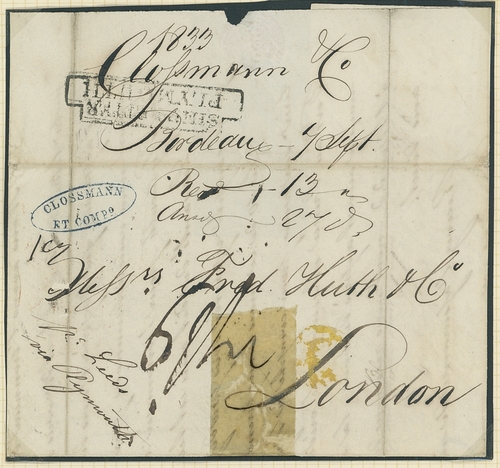 1833
Clossmann & Co
SHIP LETTER
PLYMOUTH
Bordeaux 7 Sept.
Recd 13 "
Ansd 27 do
CLOSSMANN
ET COMPO
Messrs Fred. Huth & Co
London
Pr Leeds
via Plymouth